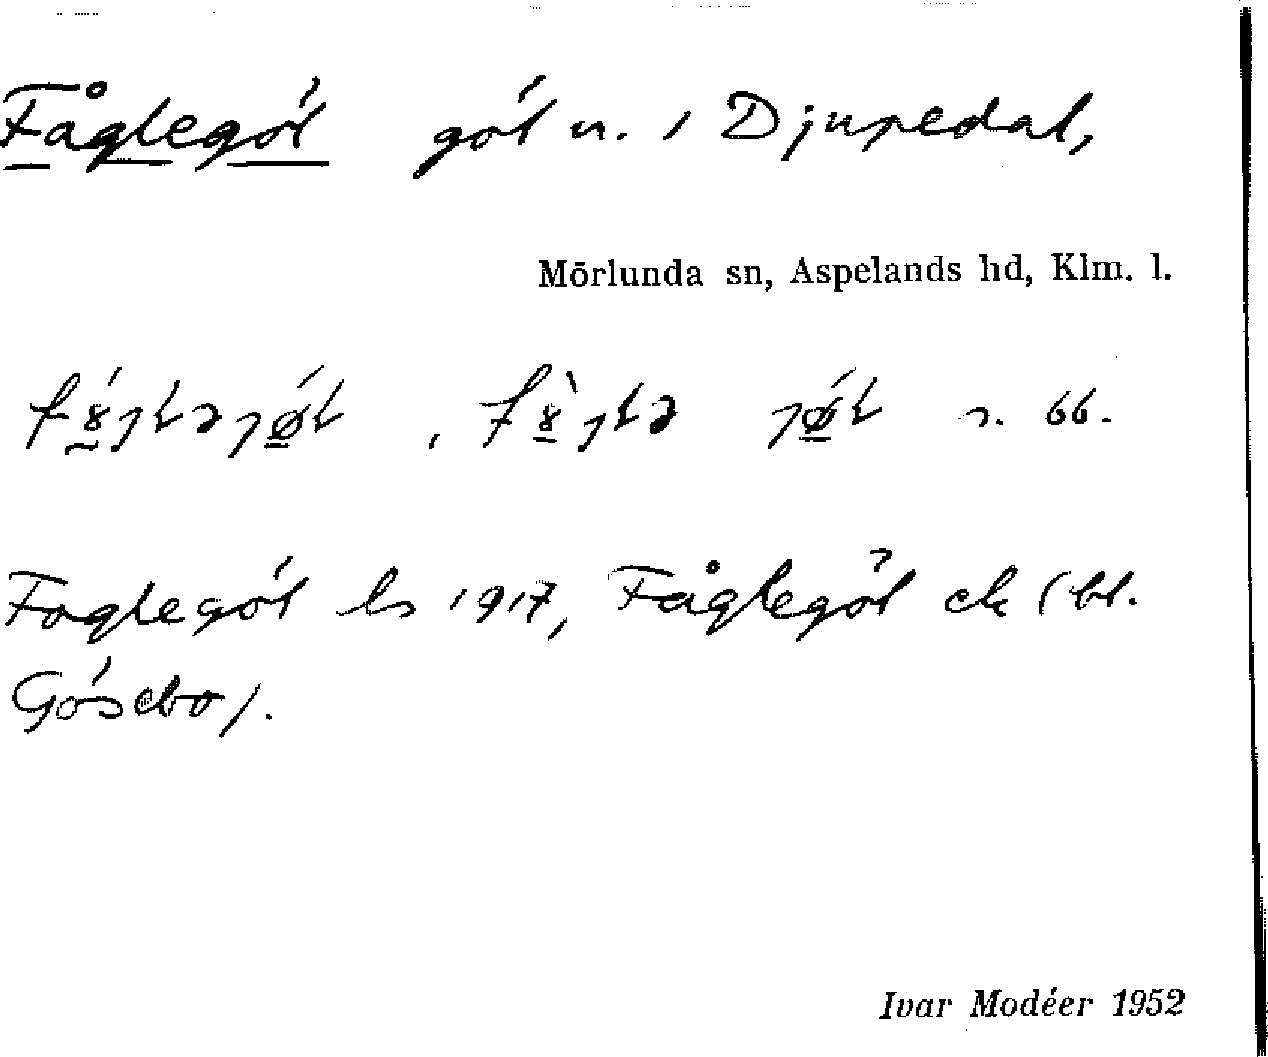 Fåglegöl göl n. i Djupedal,
Mörlunda sn, Aspelands hd, Klm. l.
Foglegöl ls 1917, Fåglegöl ek (bl.
Gösebo).
Ivar Modéer 1952